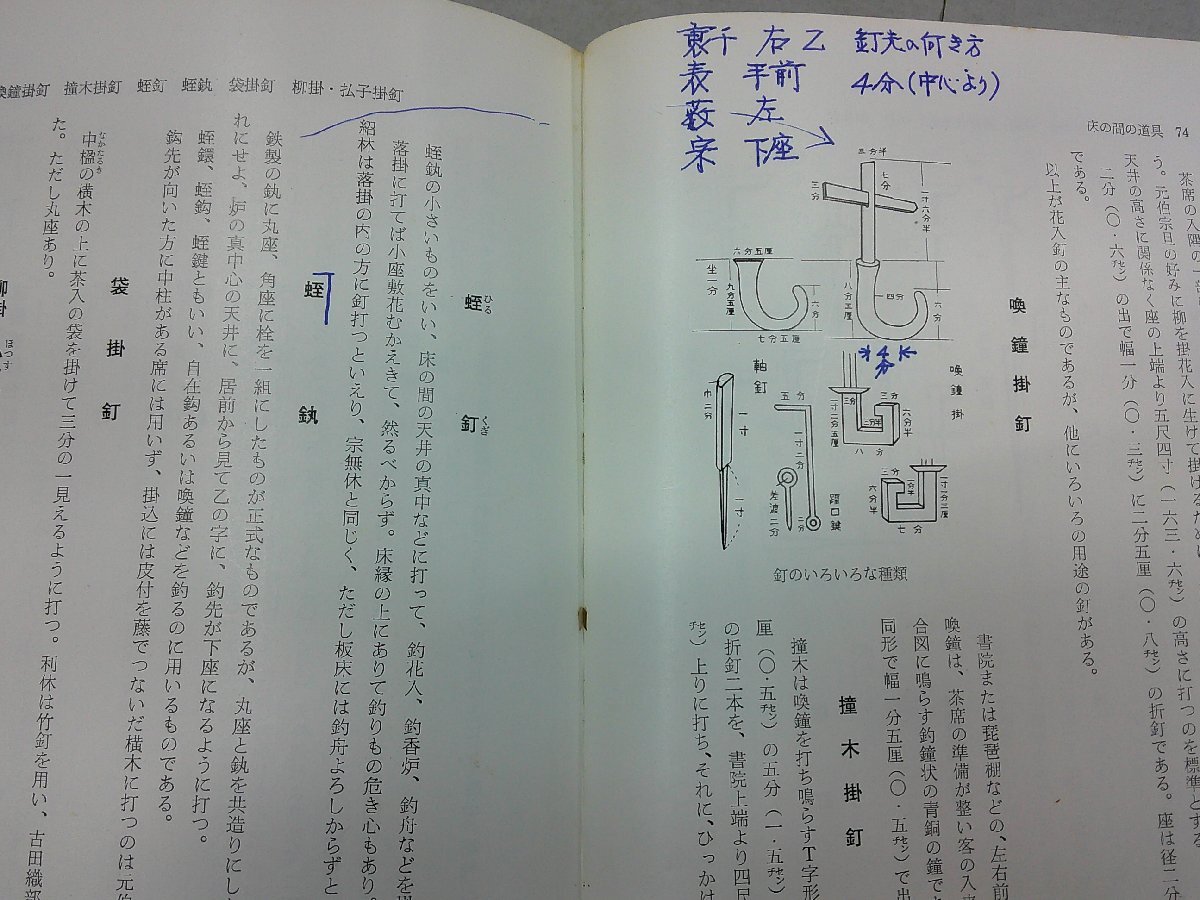 裏千 右乙 釘先の向き方
表 手前 4分(中心より)
藪 左
宗 下座
床の間の道具 74
う。元伯宗旦の好みに柳を掛花入に生けて掛けるために
天井の高さに関係なく座の上端より五尺四寸(一六三・六㌢)の高さに打つのを標準とする
二分(〇・六㌢)の出で幅一分(〇・三㌢)に二分五厘(〇・八㌢)の折釘である。座は径二分
である。
以上が花入釘の主なものであるが、他にいろいろの用途の釘がある。
喚鐘掛釘
書院または琵琶棚などの、左右前
喚鐘は、茶席の準備が整い客の入来
合図に鳴らす釣鐘状の青銅の鐘で
同形で幅一分五厘(〇・五㌢)で出
撞木掛釘
撞木は喚鐘を打ち鳴らすT字形
厘(〇・五㌢)の五分(一・五㌢)
の折釘二本を、書院上端より四尺
㌢)上りに打ち、それに、ひっかけ
三分半
七分
三分
一寸六分半
六分五厘
坐一分
九分五厘
六分
七分五厘
八分五厘
四分
六分
4分
軸釘
巾二分
一寸
一寸
五分
一寸二分
二分
差渡二分
躙口鍵
喚鐘掛
三分
一寸二分五厘
二分半
六分半
八分
三分
六分半
七分
一寸一分三厘
釘のいろいろな種類
喚鐘掛釘 撞木掛釘 蛭釘 蛭釻 袋掛釘 柳掛・払子掛釘
蛭釘
ひる くぎ
蛭釻の小さいものをいい、床の間の天井の真中などに打って、釣花入、釣香炉、釣舟などを掛
落掛に打てば小座敷花むかえきて、然るべからず。床縁の上にありて釣りもの危き心もあり。
紹杦は落掛の内の方に釘打つといえり、宗無休と同じく、ただし板床には釣舟よろしからずと
蛭釻
鉄製の釻に丸座、角座に栓を一組にしたものが正式なものであるが、丸座と釻を共造りにし
れにせよ、炉の真中心の天井に、居前から見て乙の字に、釣先が下座になるように打つ。
蛭鐶、蛭鈎、蛭鍵ともいい、自在鈎あるいは喚鐘などを釣るのに用いるものである。
鈎先が向いた方に中柱がある席には用いず、掛込には皮付を藤でつないだ横木に打つのは元伯
袋掛釘
中楹の横木の上に茶入の袋を掛けて三分の一見えるように打つ。利休は竹釘を用い、古田織部
なかだるき
た。ただし丸座あり。
柳掛
ほつす